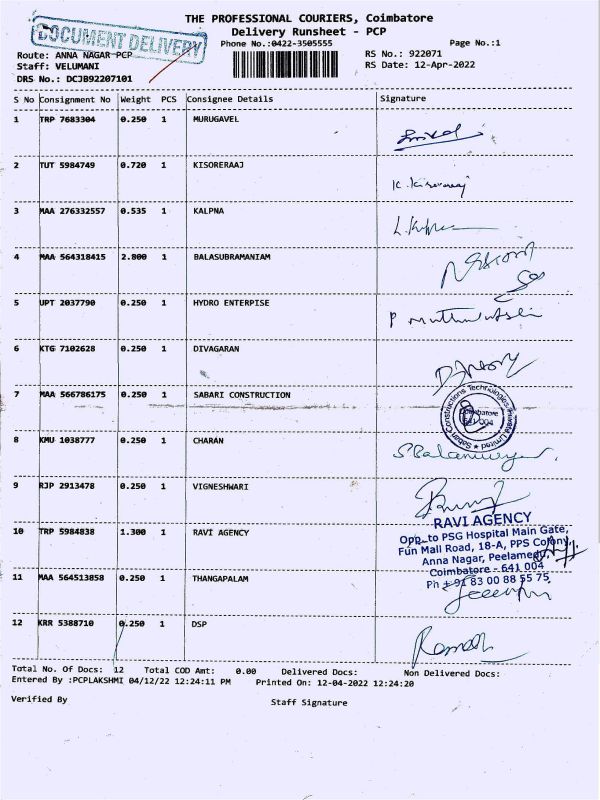 THE PROFESSIONAL COURIERS, Coimbatore
DOCUMENT DELIVERY
Delivery Runsheet - PCP
Phone No.:0422-3505555
Page No.:1
Route: ANNA NAGAR PCP
RS No.: 922071
Staff: VELUMANI
RS Date: 12-Apr-2022
DRS No.: DCJB92207101
S No Consignment No Weight PCS Consignee Details Signature
1 TRP 7683304 0.250 1 MURUGAVEL
2 TUT 5984749 0.720 1 KISORERAAJ
3 MAA 276332557 0.535 1 KALPNA
4 MAA 564318415 2.800 1 BALASUBRAMANIAM
5 UPT 2037790 0.250 1 HYDRO ENTERPISE
6 KTG 7102628 0.250 1 DIVAGARAN
7 MAA 566786175 0.250 1 SABARI CONSTRUCTION
Sabari Constructions Technologies Private Limited
Coimbatore
641 004
8 KMU 1038777 0.250 1 CHARAN
9 RJP 2913478 0.250 1 VIGNESHWARI
RAVI AGENCY
10 TRP 5984838 1.300 1 RAVI AGENCY
Opp. to PSG Hospital Main Gate,
Fun Mall Road, 18-A, PPS Colony,
Anna Nagar, Peelamedu,
Coimbatore - 641 004
Ph +91 83 00 88 55 75
11 MAA 564513858 0.250 1 THANGAPALAM
12 KRR 5388710 0.250 1 DSP
Total No. Of Docs: 12 Total COD Amt: 0.00 Delivered Docs: Non Delivered Docs:
Entered By :PCPLAKSHMI 04/12/22 12:24:11 PM Printed On: 12-04-2022 12:24:20
Verified By Staff Signature